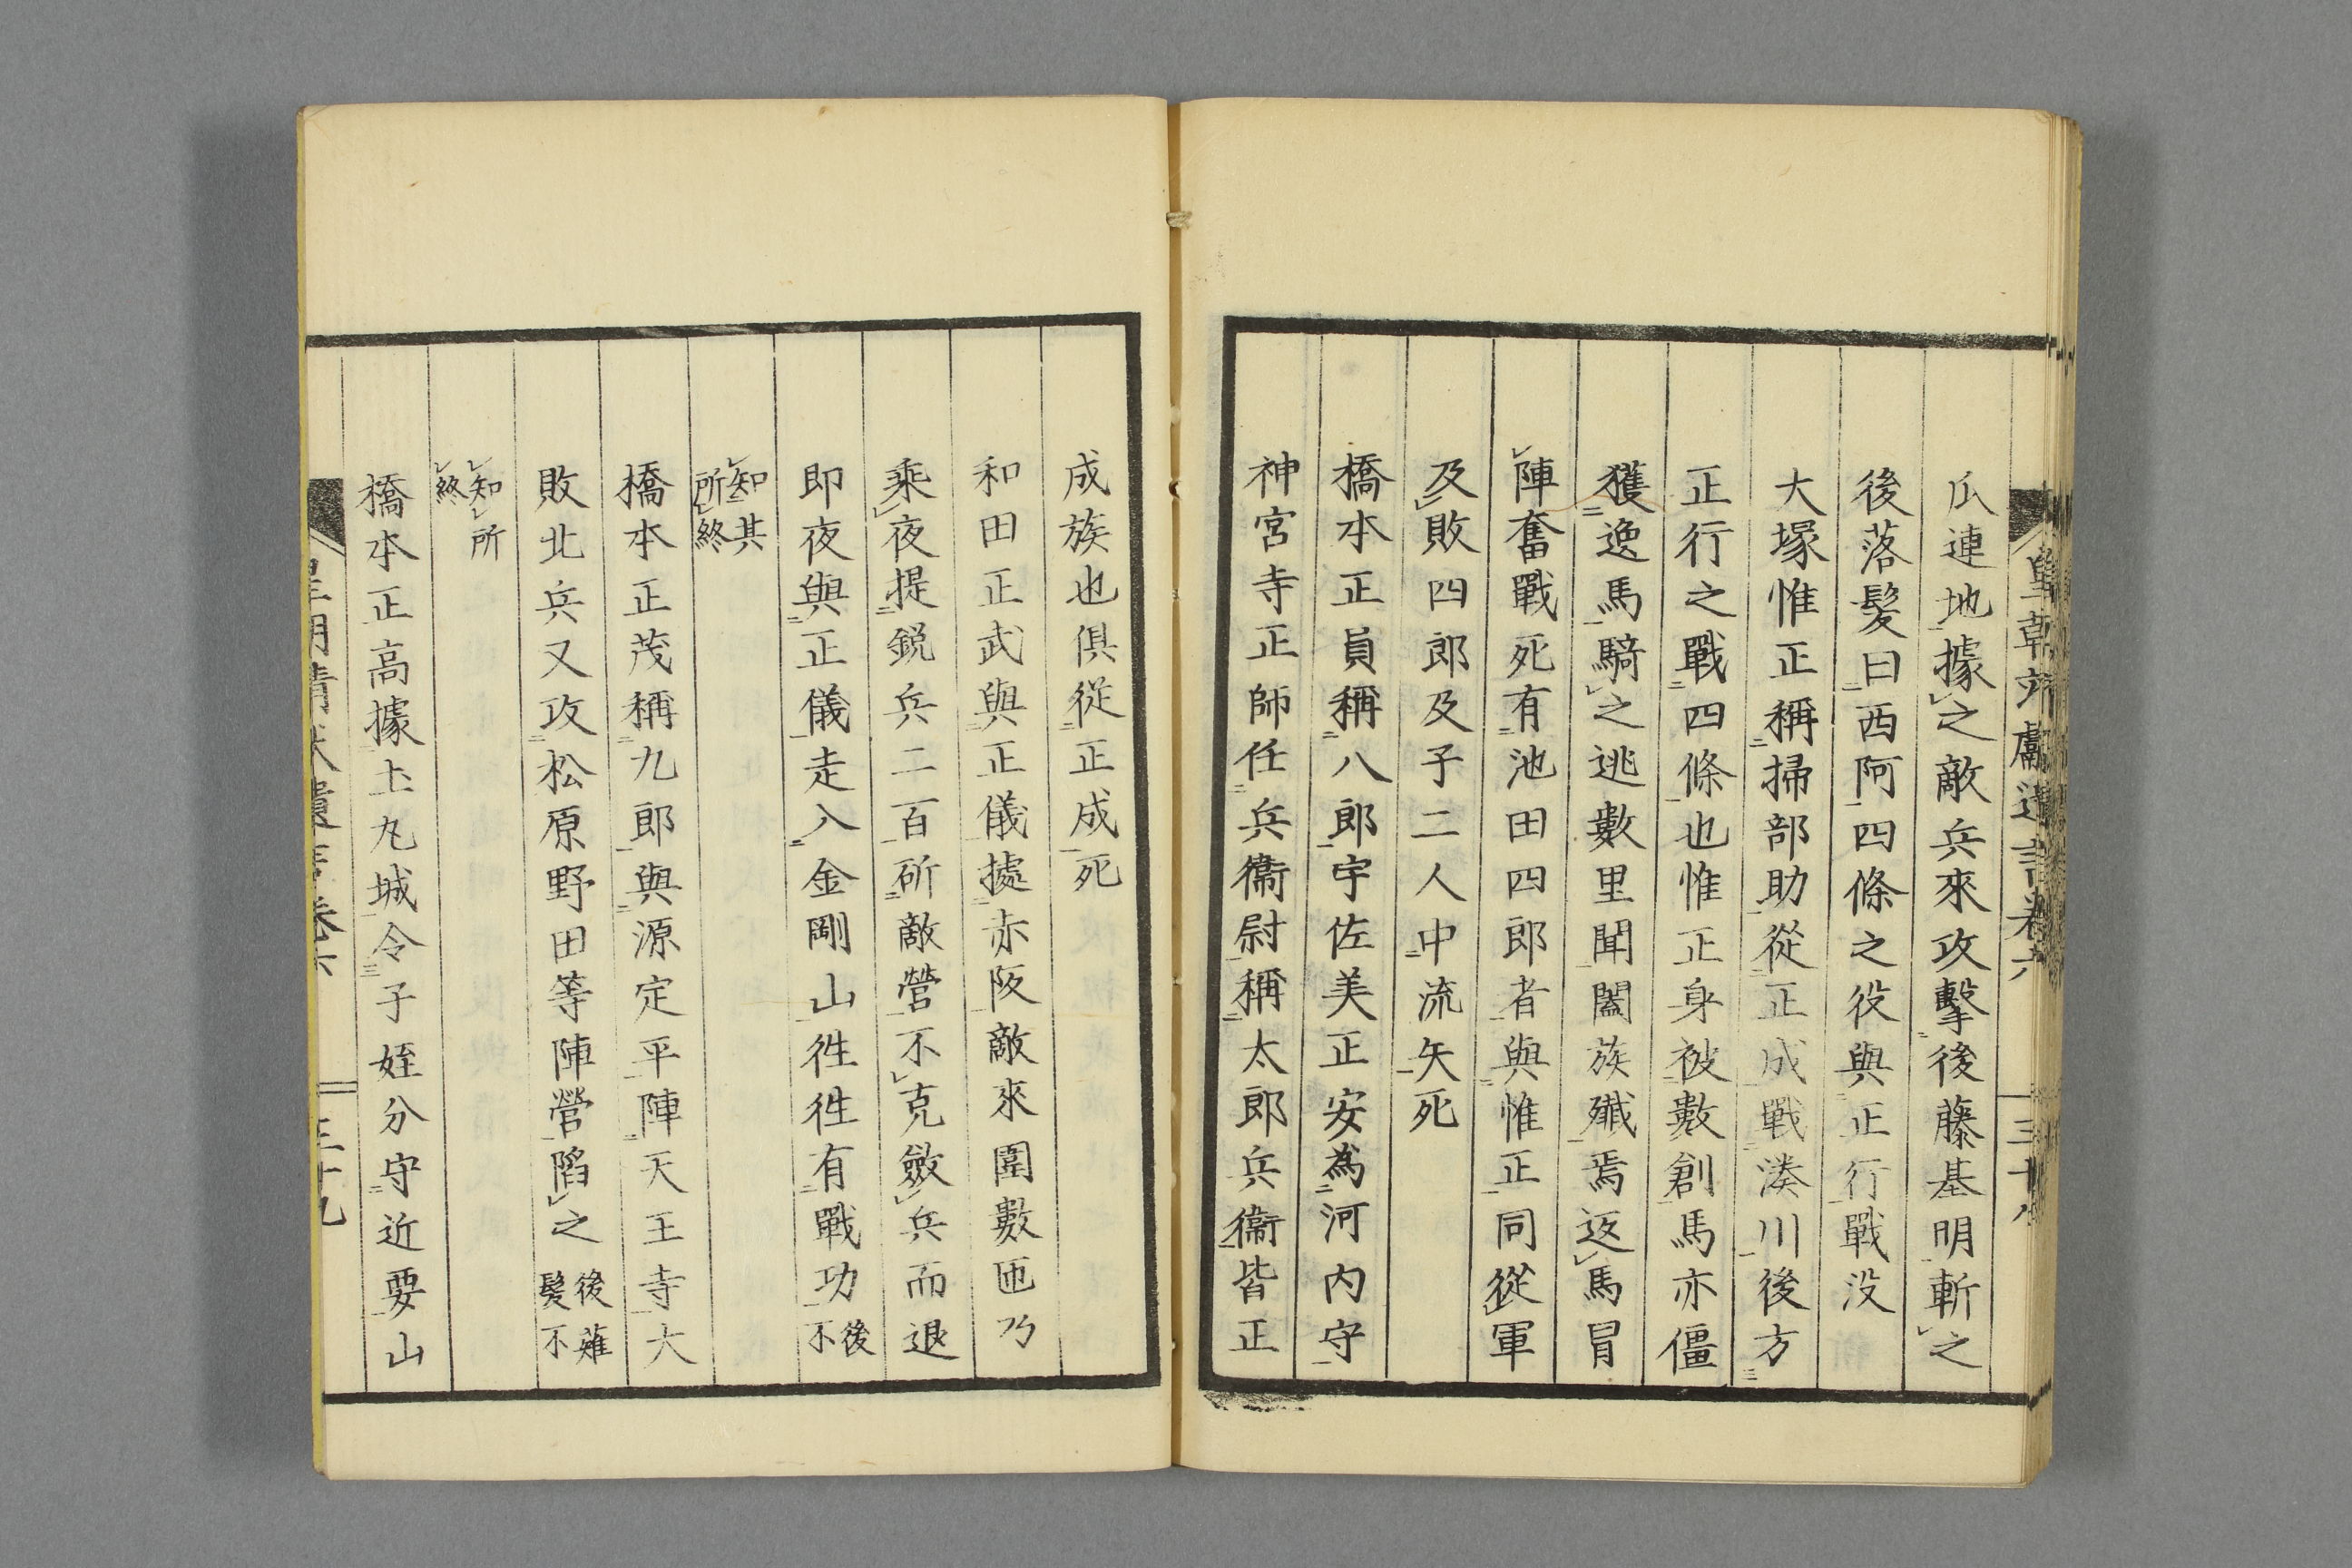 瓜連地據之敵兵來攻擊後藤基明斬之
後落髮曰西阿四條之役與正行戰没
大塚惟正稱掃部助從正成戰湊川後方
正行之戰四條也惟正身被數創馬亦僵
獲逸馬騎之逃數里聞闔族殲焉返馬冒
陣奮戰死有池田四郎者與惟正同從軍
及敗四郎及子二人中流矢死
橋本正員稱八郎宇佐美正安為河内守
神宮寺正師任兵衞尉稱太郎兵衞皆正
成族也俱從正成死
和田正武與正儀據赤阪敵來圍數匝乃
乘夜提鋭兵二百斫敵營不克斂兵而退
即夜與正儀走入金剛山徃徃有戰功後不
知其所終
橋本正茂稱九郎與源定平陣天王寺大
敗北兵又攻松原野田等陣營陷之後薙髮不
知所終
橋本正高據土丸城令子姪分守近要山